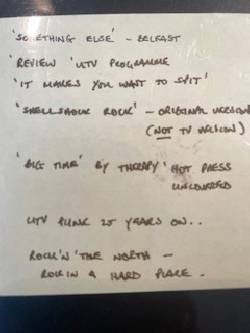 'SOMETHING ELSE' - BELFAST
'REVIEW' UTV PROGRAMME
'IT MAKES YOU WANT TO SPIT'
'SHELLSHOCK ROCK' - ORIGINAL VERSION
(NOT TV VERSION)
'BIG TIME' BY THERAPY' HOT PRESS
UTV PUNK 25 YEARS ON..
ROCK 'N' THE NORTH =
ROCK IN A HARD PLACE.